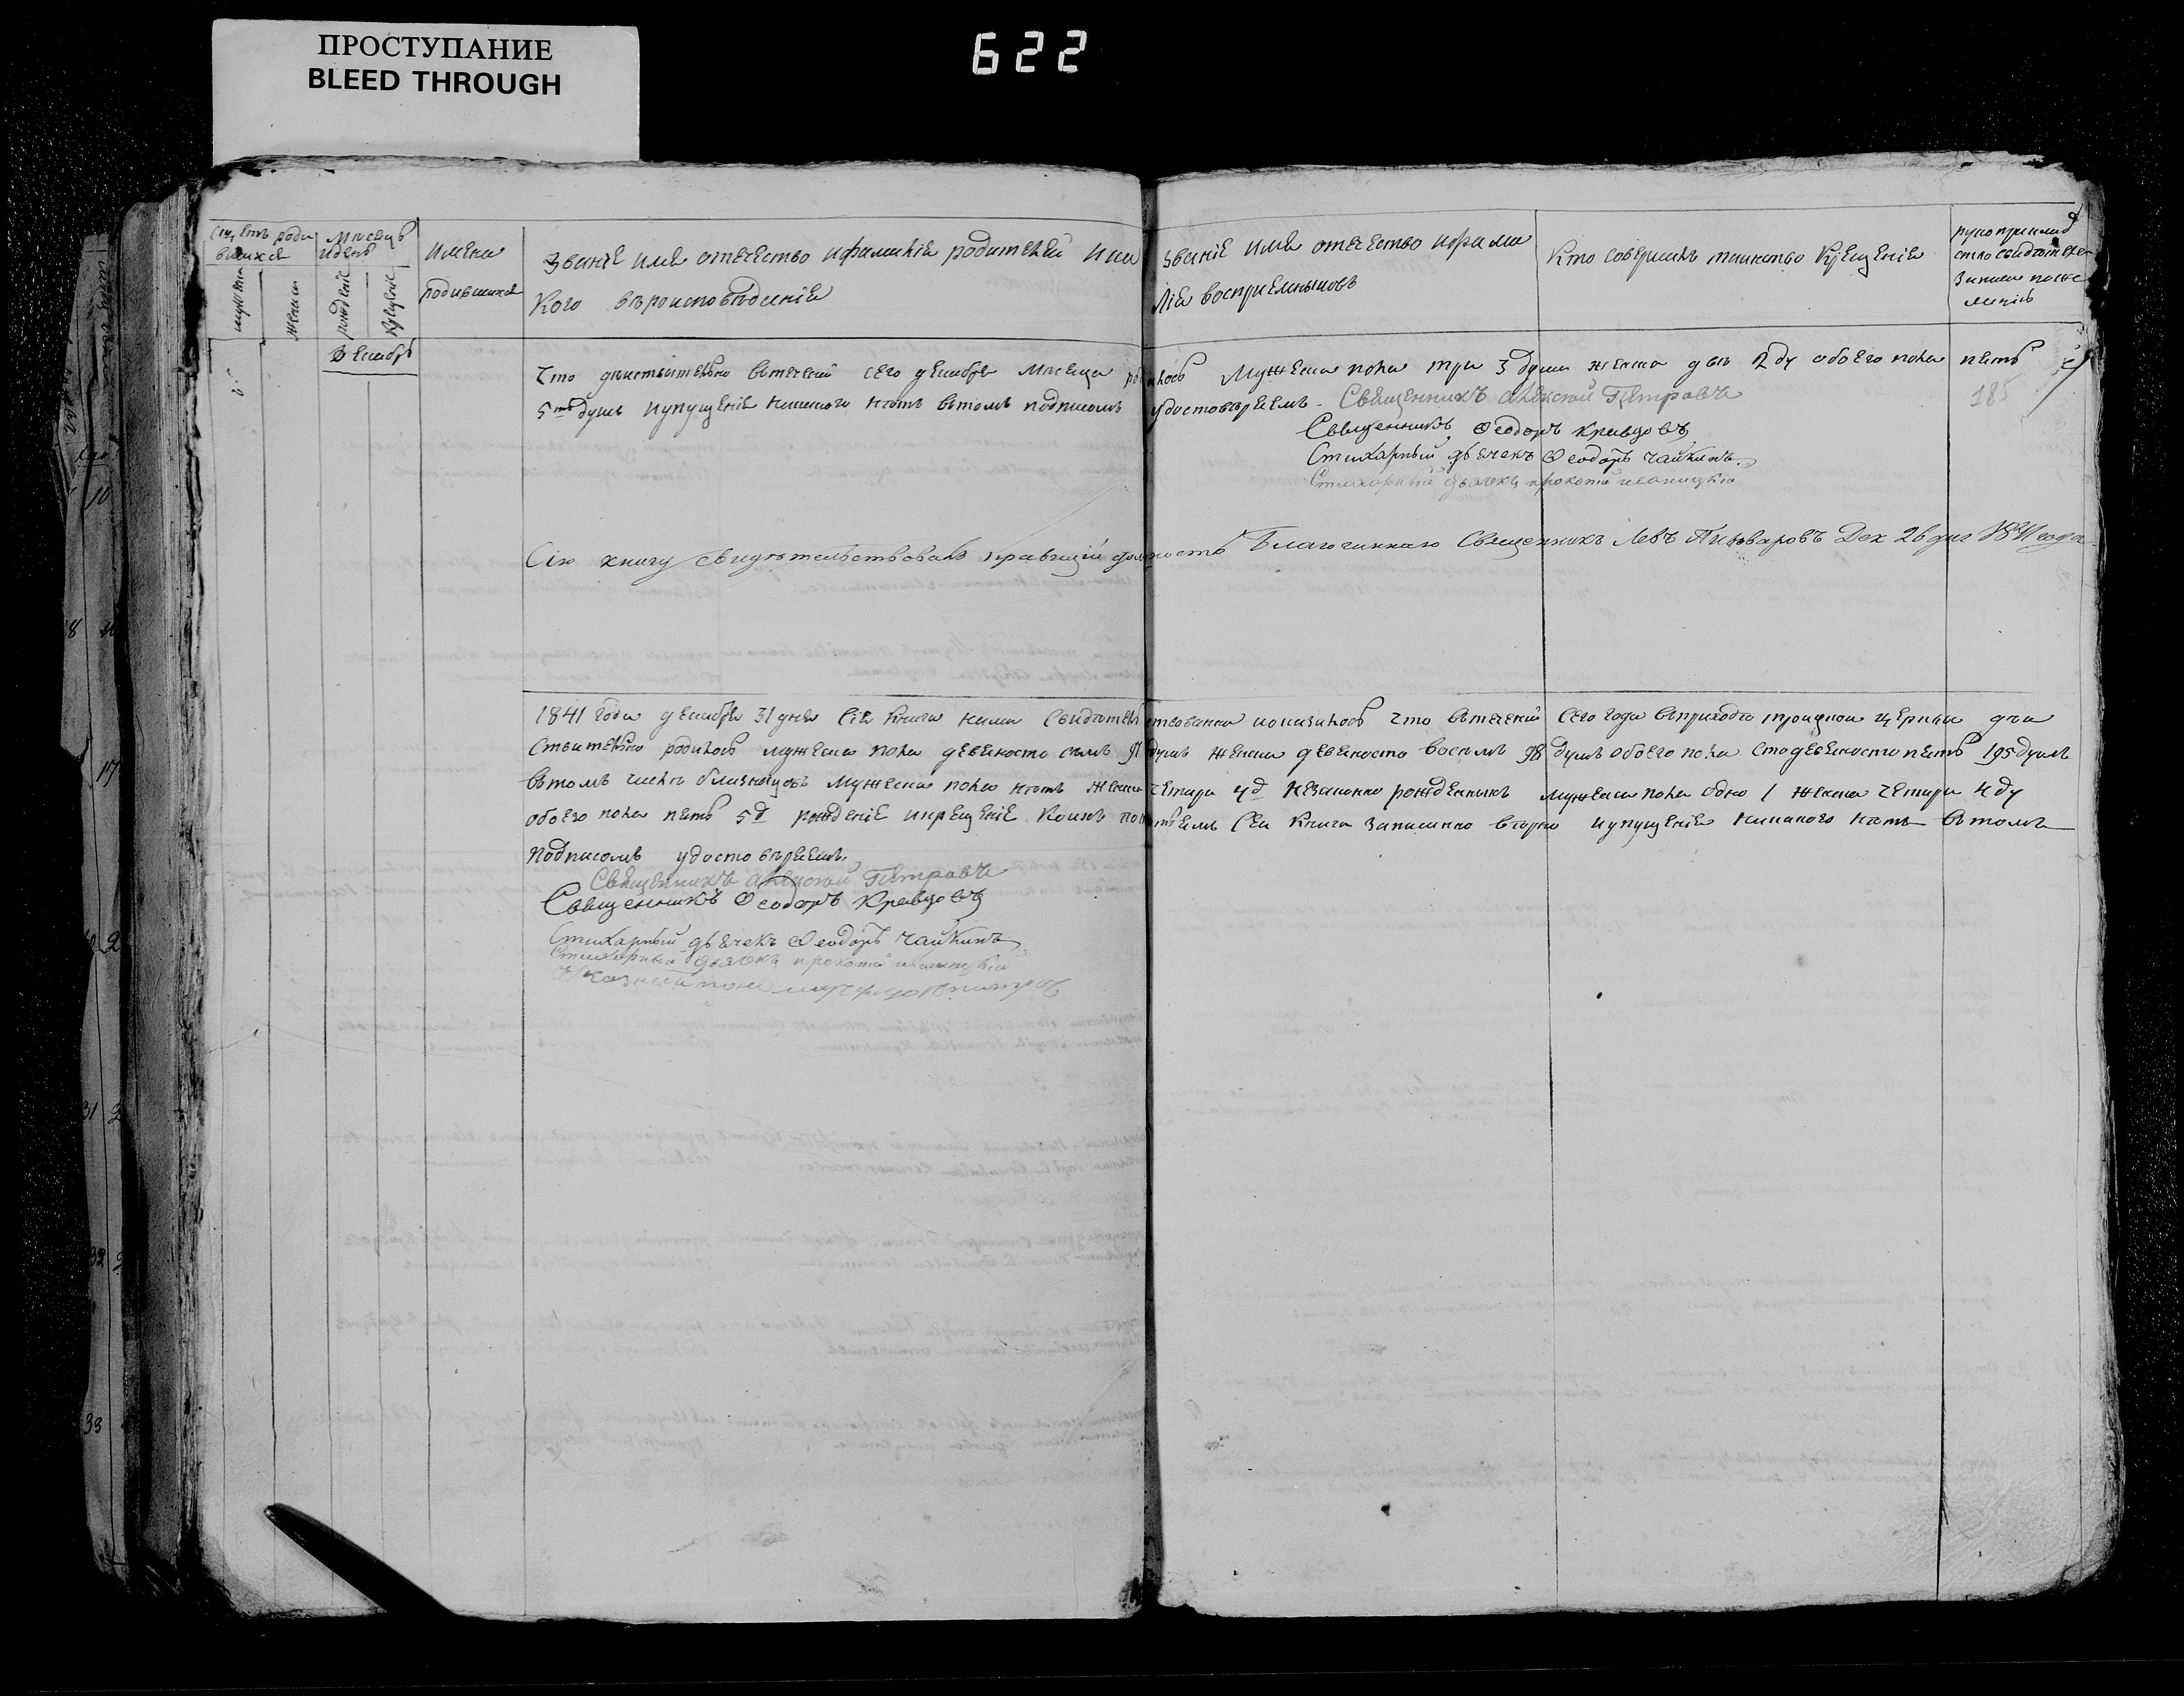 ПРОСТУПАНИЕ
BLEED THROUGH
622
Счетъ роди
вшихся
мужеска
женска
Мѣсяцъ
и день
рожденіе
крещеніе
Имена
родившихся
Званіе имя отечество и фамилія родителей и ка
кого вѣроисповѣданія
Званіе имя отечество и фами
лія воспріемниковъ
Кто совершилъ таинство Крещенія
рукоприклад
ство свидѣтелей
записи по же
ланію
Декабрь
Что дѣиствительно втечении сего декабря мѣсяца родилось мужеска пола три 3 души женска двѣ 2 ду обоего пола пять
5ть душъ и упущенія никакого нѣтъ втомъ подписомъ удостовѣряемъ - Священникъ Алексѣй Петровъ
185
Священникъ Ѳеодоръ Кравцовъ
Стихарный дьячекъ Ѳеодоръ Чайкинъ
Стихарный дьячокъ прокопій иваницкій
Сію книгу свидѣтельствовалъ правящій должность Благочиннаго Священникъ Левъ Пивоваровъ Дек 26 дня 1841 года
1841 года декабря 31 дня сія книга нами свидѣтельствованна и оказалось что втечении сего года вприходѣ троицкои церкви дѣи
ствительно родилось мужеска пола девяносто семь 97 душъ женска девяносто восемь 98 душъ обоего пола сто девяносто пять 195 душъ
втомъ числѣ близнецовъ мужеска пола нѣтъ женска четыри 4 д незаконно рожденныхъ мужеска пола одно 1 женска четыри 4 ду
обоего пола пять 5 д рожденіе и крещеніе коихъ по сея книга записанно вѣрно и упущенія никакого нѣтъ втомъ
подписомъ удостовѣряемъ
Священникъ Алексѣй Петровъ
Священникъ Ѳеодоръ Кравцовъ
Стихарный дьячекъ Ѳеодоръ Чайкинъ
Стихарный дьячокъ прокопій иваницкій
Указный понамарь